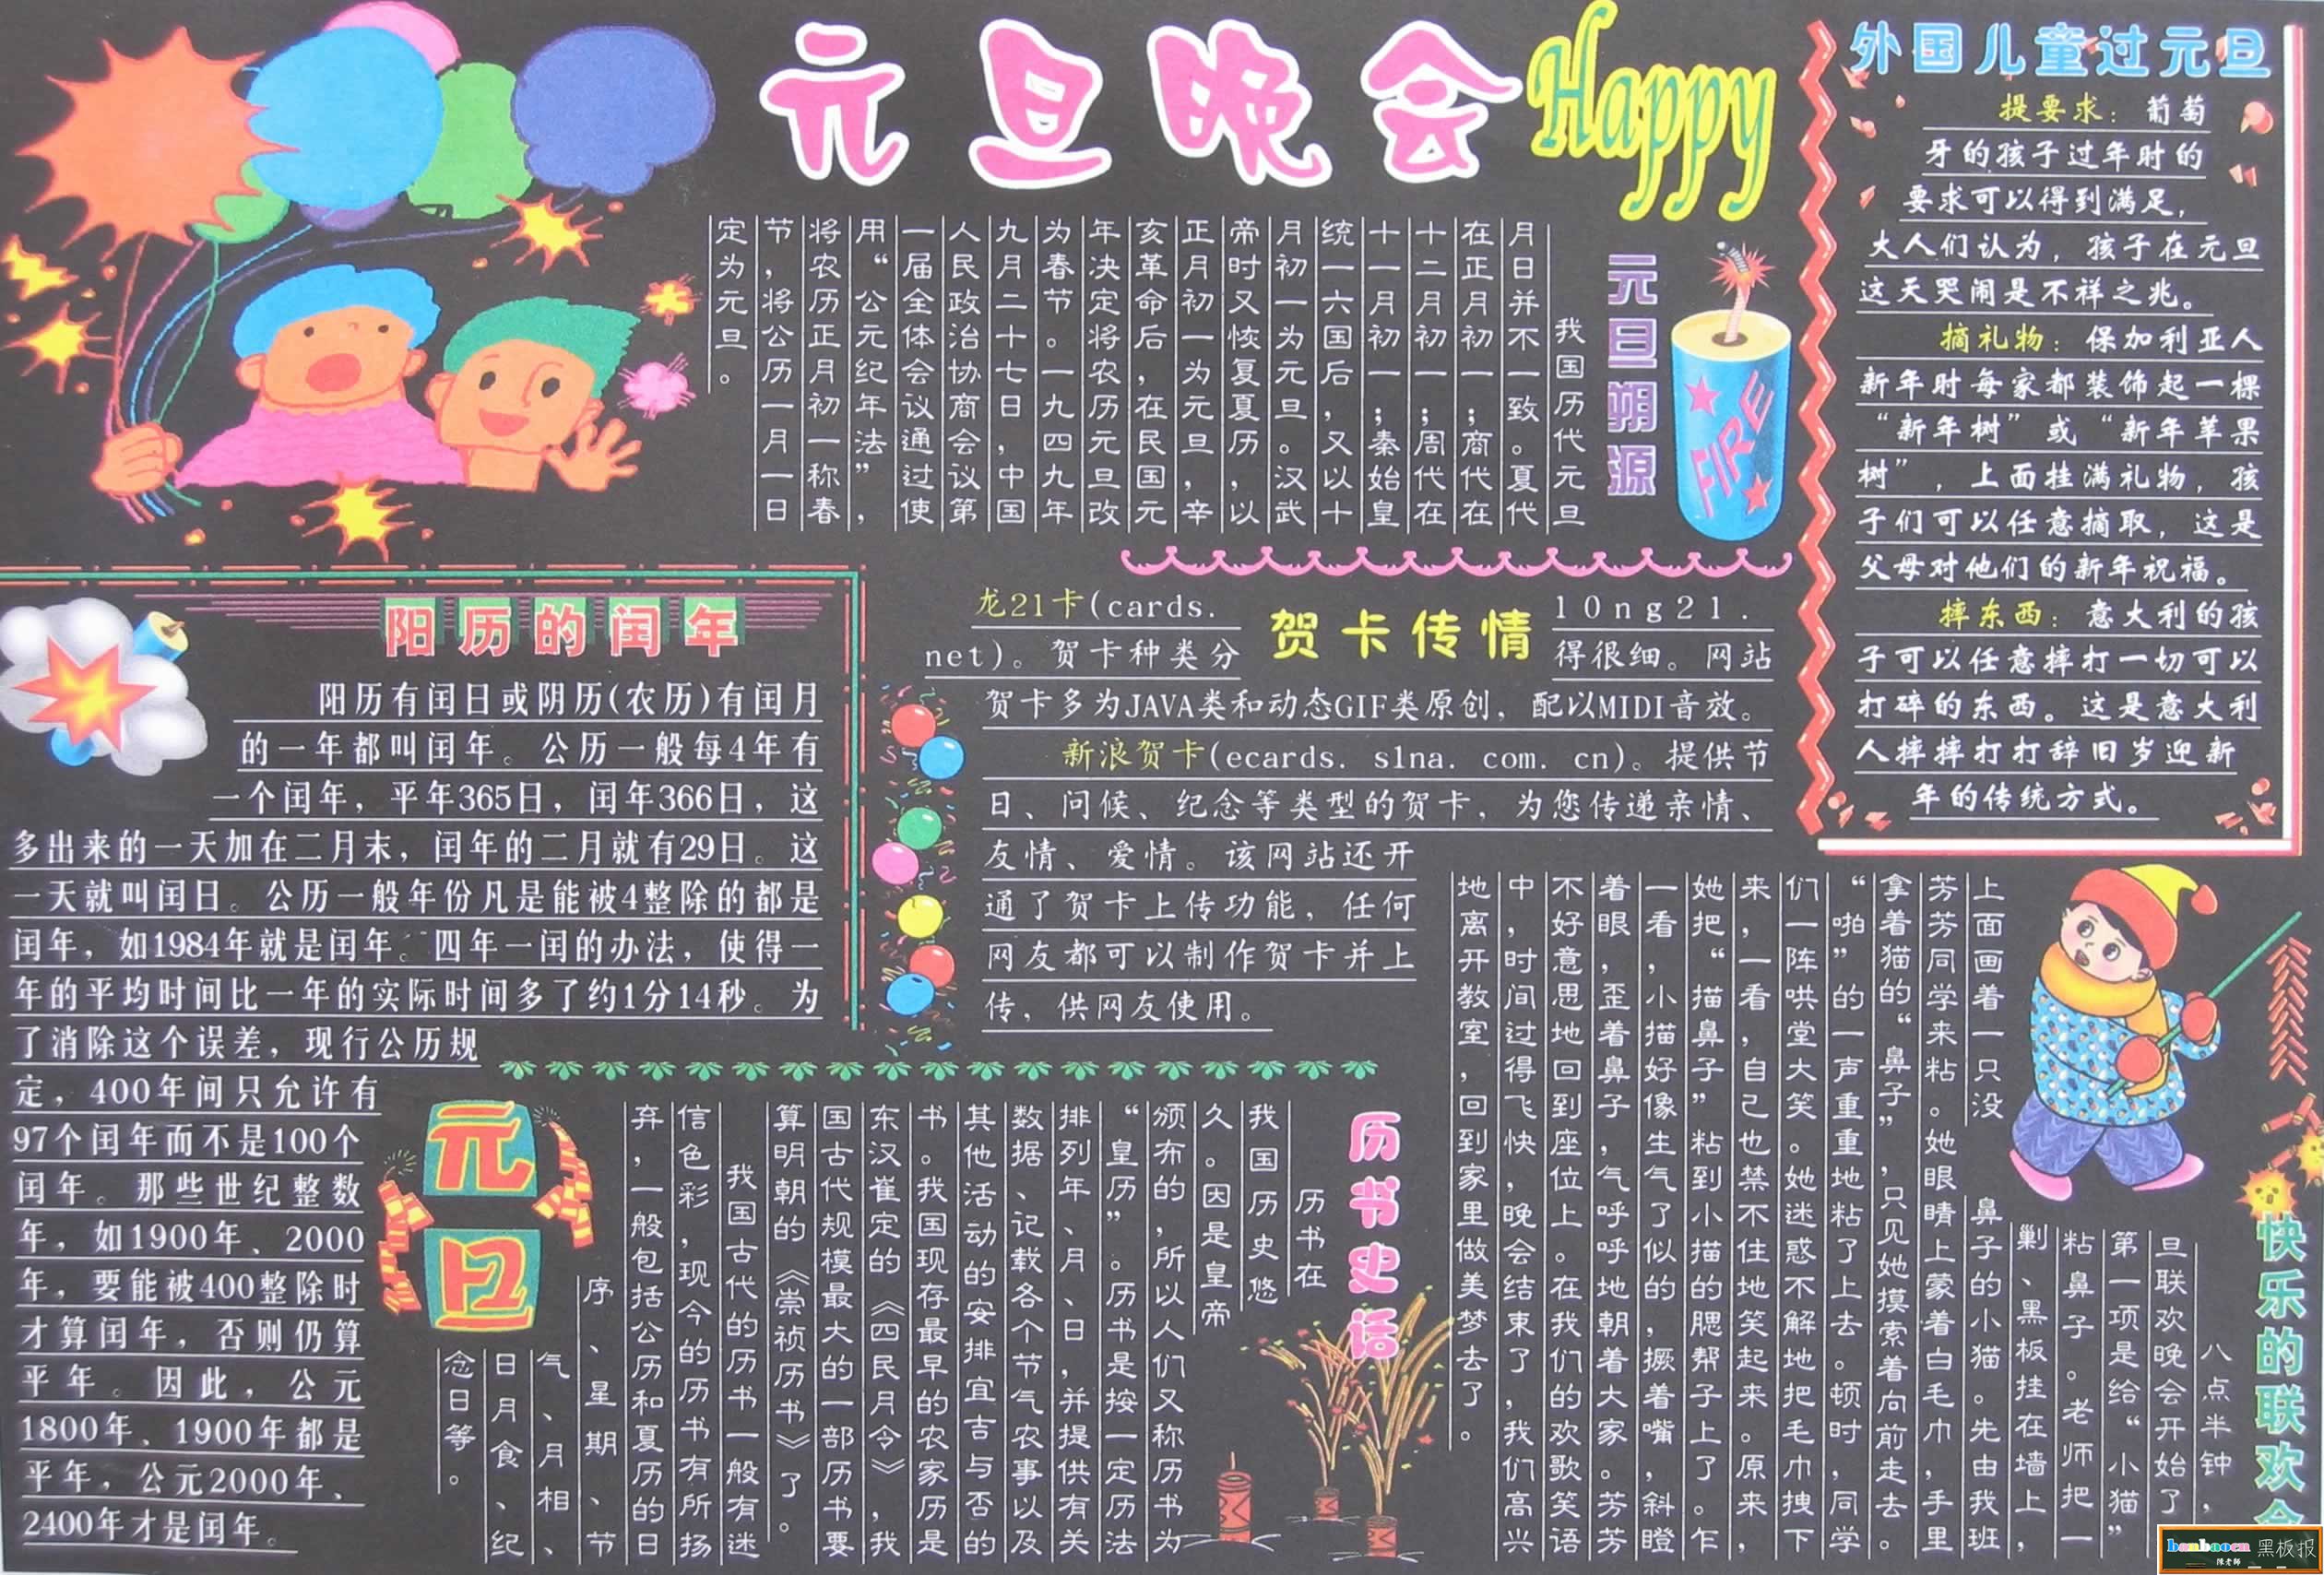 元旦晚会
Happy
元旦朔源
我国历代元旦
月日并不一致。夏代
在正月初一；商代在
十二月初一；周代在
十一月初一；秦始皇
统一六国后，又以十
月初一为元旦。汉武
帝时又恢复夏历，以
正月初一为元旦，辛
亥革命后，在民国元
年决定将农历元旦改
为春节。一九四九年
九月二十七日，中国
人民政治协商会议第
一届全体会议通过使
用“公元纪年法”，
将农历正月初一称春
节，将公历一月一日
定为元旦。
FIRE
外国儿童过元旦
提要求：葡萄
牙的孩子过年时的
要求可以得到满足，
大人们认为，孩子在元旦
这天哭闹是不祥之兆。
摘礼物：保加利亚人
新年时每家都装饰起一棵
“新年树”或“新年苹果
树”，上面挂满礼物，孩
子们可以任意摘取，这是
父母对他们的新年祝福。
摔东西：意大利的孩
子可以任意摔打一切可以
打碎的东西。这是意大利
人摔摔打打辞旧岁迎新
年的传统方式。
阳历的闰年
阳历有闰日或阴历(农历)有闰月
的一年都叫闰年。公历一般每4年有
一个闰年，平年365日，闰年366日，这
多出来的一天加在二月末，闰年的二月就有29日。这
一天就叫闰日。公历一般年份凡是能被4整除的都是
闰年，如1984年就是闰年。四年一闰的办法，使得一
年的平均时间比一年的实际时间多了约1分14秒。为
了消除这个误差，现行公历规
定，400年间只允许有
97个闰年而不是100个
闰年。那些世纪整数
年，如1900年、2000
年，要能被400整除时
才算闰年，否则仍算
平年。因此，公元
1800年、1900年都是
平年，公元2000年、
2400年才是闰年。
贺卡传情
龙21卡(cards. 10ng21.
net)。贺卡种类分得很细。网站
贺卡多为JAVA类和动态GIF类原创，配以MIDI音效。
新浪贺卡(ecards. s1na. com. cn)。提供节
日、问候、纪念等类型的贺卡，为您传递亲情、
友情、爱情。该网站还开
通了贺卡上传功能，任何
网友都可以制作贺卡并上
传，供网友使用。
元旦
历书史话
历书在
我国历史悠
久。因是皇帝
颁布的，所以人们又称历书为
“皇历”。历书是按一定历法
排列年、月、日，并提供有关
数据、记载各个节气农事以及
其他活动的安排宜吉与否的
书。我国现存最早的农家历是
东汉崔定的《四民月令》，我
国古代规模最大的一部历书要
算明朝的《崇祯历书》了。
我国古代的历书一般有迷
信色彩，现今的历书有所扬
弃，一般包括公历和夏历的日
序、星期、节
气、月相、
日月食、纪
念日等。
快乐的联欢会
八点半钟，
旦联欢晚会开始了
第一项是给“小猫”
粘鼻子。老师把一
剿、黑板挂在墙上，
上面画着一只没鼻子的小猫。先由我班
芳芳同学来粘。她眼睛上蒙着白毛巾，手里
拿着猫的“鼻子”，只见她摸索着向前走去。
“啪”的一声重重地粘了上去。顿时，同学
们一阵哄堂大笑。她迷惑不解地把毛巾拽下
来，一看，自己也禁不住地笑起来。原来，
她把“描鼻子”粘到小描的腮帮子上了。乍
一看，小描好像生气了似的，撅着嘴，斜瞪
着眼，歪着鼻子，气呼呼地朝着大家。芳芳
不好意思地回到座位上。在我们的欢歌笑语
中，时间过得飞快，晚会结束了，我们高兴
地离开教室，回到家里做美梦去了。
banbaocn 黑板报
陈老师